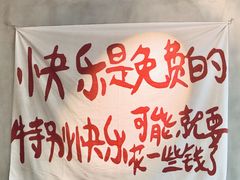 小快乐是免费的
特别快乐
可能就要
花一些钱了